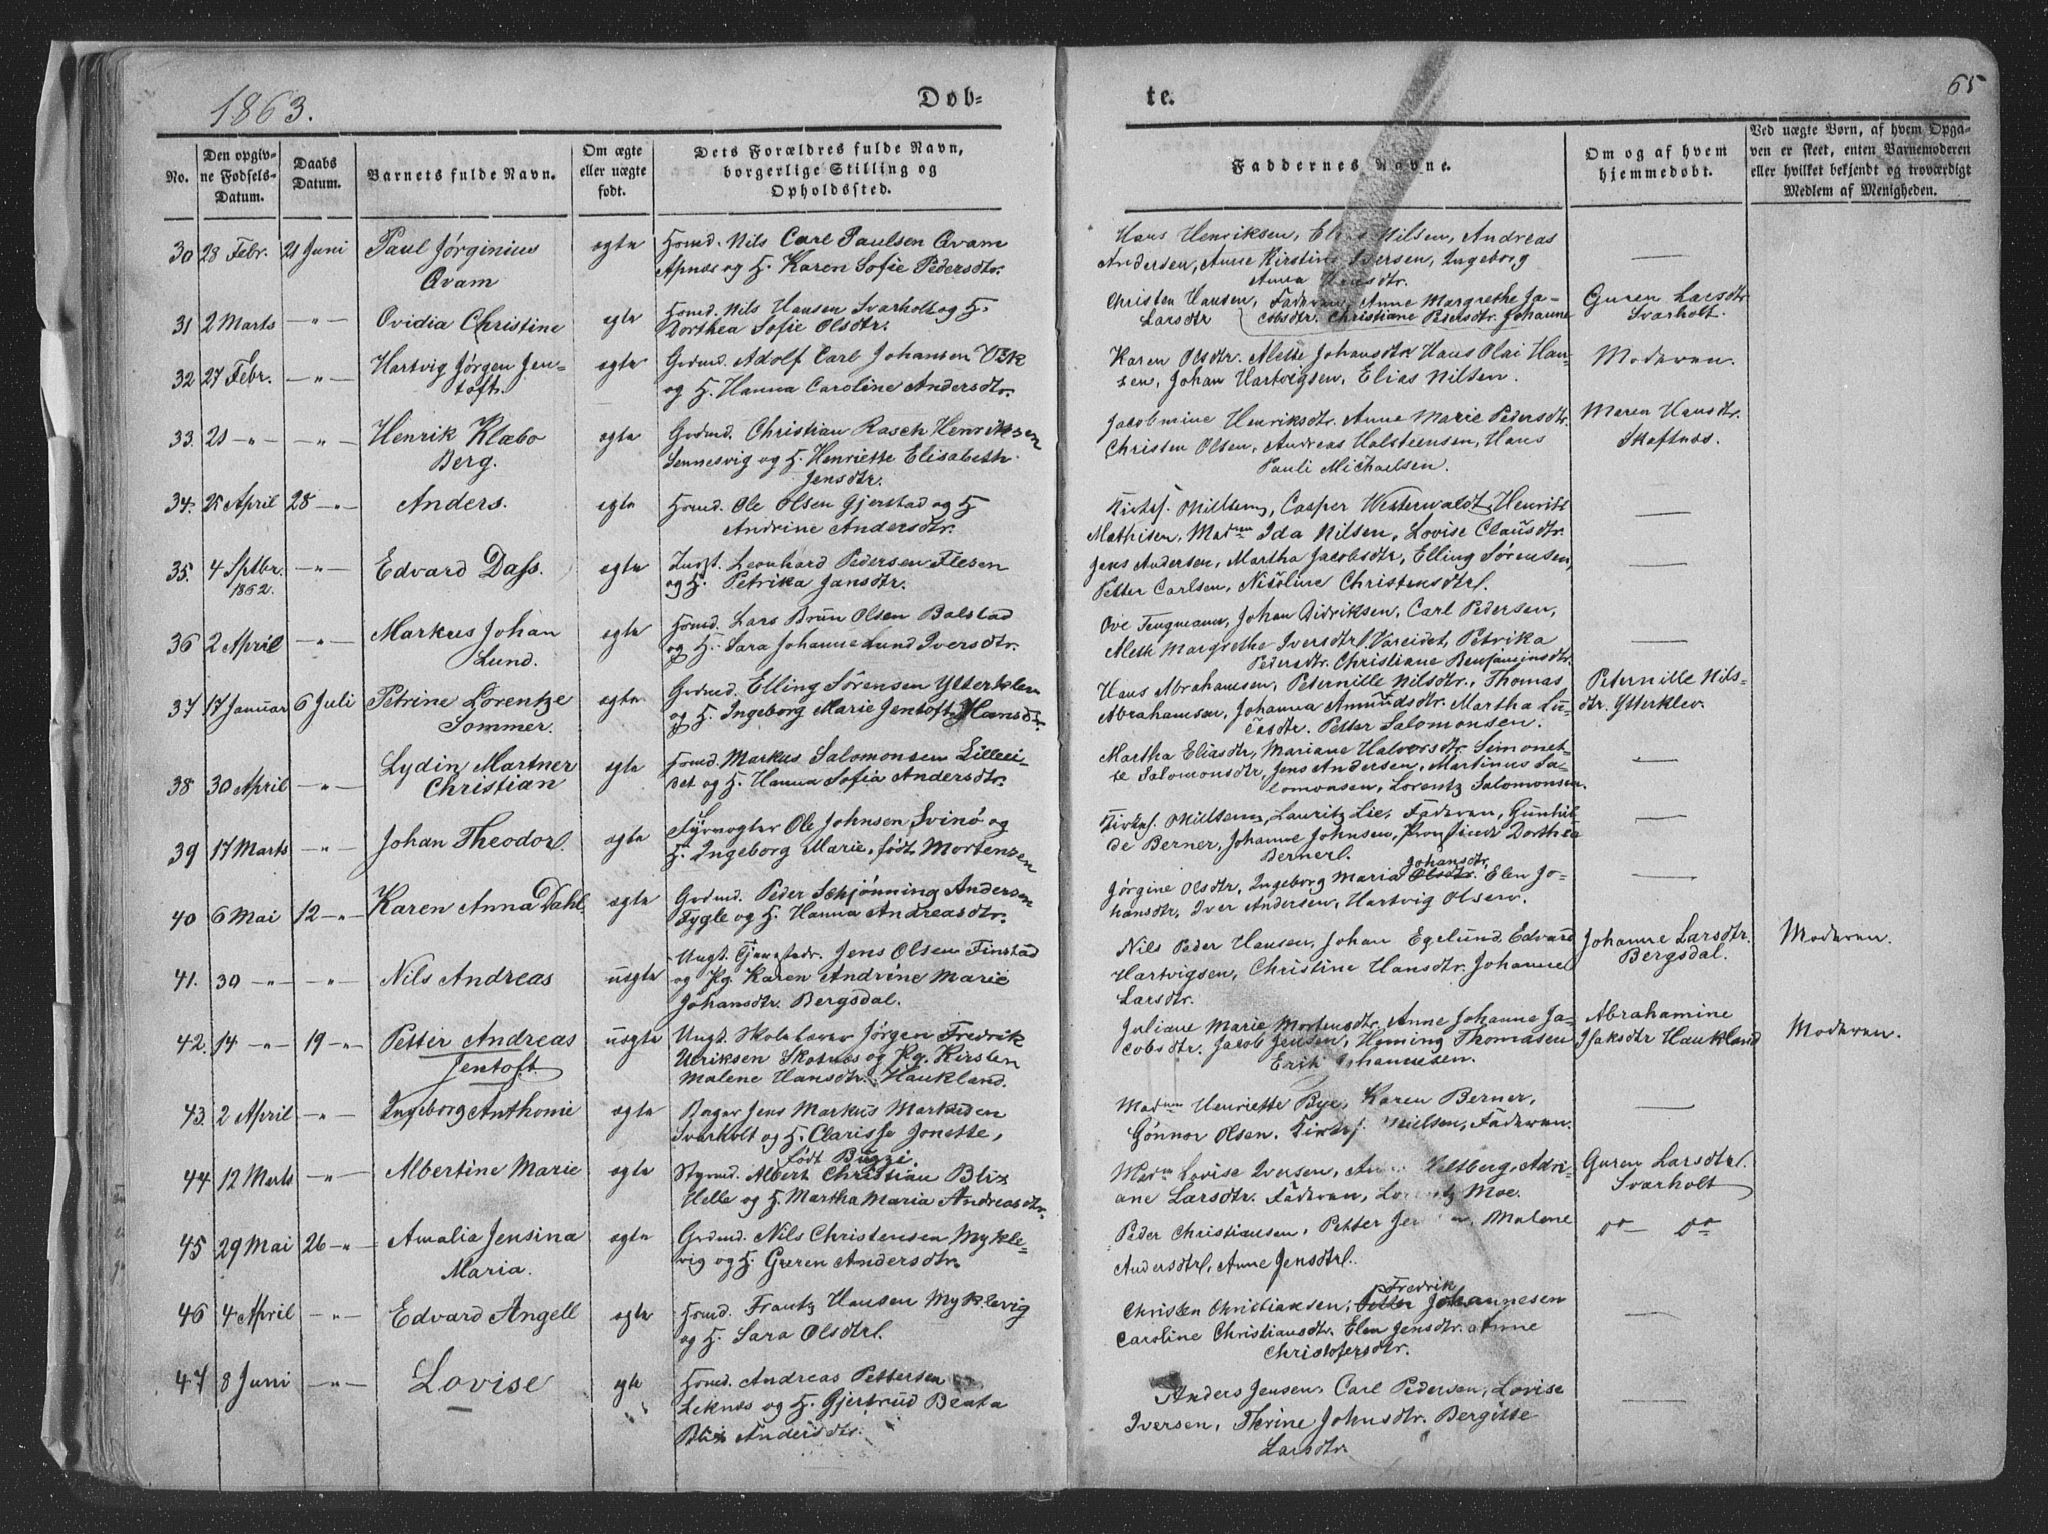 1863.
Døb-
te.
65
No.
Den opgiv-
ne Fødsels-
Datum.
Daabs
Datum.
Barnets fulde Navn.
Om ægte
eller uægte
født.
Dets Forældres fulde Navn,
borgerlige Stilling og
Opholdssted.
Faddernes Navne.
Om og af hvem
hjemmedøbt.
Ved uægte Børn, af hvem Opga-
ven er skeet, enten Barnemoderen
eller hvilket bekjendt og troværdigt
Medlem af Menigheden.
30 28 Febr. 21 Juni Paul Jørginius
Qvam
ægte
Huusmd. Nils Carl Paulsen Qvam
Apnæs og H. Karen Sofie Pedersdtr.
Hans Henriksen, Nilsen, Andreas
Andersen, Anne Kirstine Iversen, Ingeborg
Anna
31 2 Marts -"- Ovidia Christine
ægte
Huusmd. Nils Hansen Svarholt og H.
Dorthea Sofie Olsdtr.
Christen Hansen, Faderen, Anne Margrethe Ja-
Larsdtr cobsdtr. Christiane Pedersdtr. Johanne
Guren Larsdtr.
Svarholt.
32 27 Febr. -"- Hartvig Jørgen Jen-
toft.
ægte
Grdmd. Adolf Carl Johansen Vik
og H. Hanna Caroline Andersdtr.
Karen Olsdtr. Alette Johansdtr Hans Olai Han-
sen, Johan Hartvigsen, Elias Nilsen.
Moderen.
33. 21 -"- -"- Henrik Klæbo
Berg.
ægte
Grdmd. Christian Rasch Henriksen
Sennesvig og H. Henriette Elisabeth
Jensdtr.
Jacobmine Henriksdtr. Anne Marie Pedersdtr.
Christen Olsen, Andreas Halsteensen, Hans
Pauli Michaelsen.
Maren Hansdtr.
Skaftnæs.
34. 25 April 28 -"- Anders.
ægte
Huusmd. Ole Olsen Gjerstad og H
Andrine Andersdtr.
Casper Westerwaldt, Henrik
Mathisen, Madm Ida Nilsen, Lovise Clausdtr.
35. 4 Septbr. -"- Edvard Dass.
1862.
ægte
Leonhard Pedersen Flesen
og H. Petrika Jansdtr.
Jens Andersen, Martha Jacobsdtr, Elling Sørensen,
Petter Carlsen, Nicoline Christensdtr.
36 2 April -"- Markus Johan
Lund.
ægte
Huusmd. Lars Brun Olsen Balstad
og H. Sara Johanne Lund Iversdtr.
Ove Teugmann, Johan Didriksen, Carl Pedersen,
Aleth Margrethe Iversdtr. Vareidet, Petrika
Pedersdtr. Christiane Benjaminsdtr.
37 17 Januar 6 Juli Petrine Lorentze
Sommer.
ægte
Grdmd. Elling Sørensen Ytterklev
og H. Ingeborg Marie Jentoft Hansdtr.
Hans Abrahamsen, Peternille Nilsdtr., Thomas
Abrahamsen, Johanna Amundsdtr. Martha Lu-
casdtr. Petter Salomonsen.
Peternille Nils-
dtr. Ytterklev.
38 30 April -"- Lydin Martner
Christian
ægte
Huusmd. Markus Salomonsen Lillei-
det og H. Hanna Sofia Andersdtr.
Martha Eliasdtr, Mariane Halvorsdtr. Simonet-
te Salomonsdtr, Jens Andersen, Martinus Sa-
lomonsen, Lorentz Salomonsen.
39 17 Marts -"- Johan Theodor.
ægte
Fyrvogter Ole Johnsen Svinø og
H. Ingeborg Marie, født Mortensen
Lauritz Lie, Faderen, Gunhil-
de Berner, Johanne Johnsen, Dorthea
Berner.
40 6 Mai 12 -"- Karen Anna Dahl
ægte
Grdmd. Peder Schjønning Andersen
Fygle og H. Hanna Andreasdtr.
Johansdtr,
Jørgine Olsdtr, Ingeborg Maria Olsdtr. Elen Jo-
hansdtr, Iver Andersen, Hartvig Olsen.
41. 30 -"- -"- Nils Andreas
uægte
Ungk. Jens Olsen Finstad
og Pg. Karen Andrine Marie
Johansdtr. Bergsdal.
Nils Peder Hansen, Johan Egelund, Edvard
Hartvigsen, Christine Hansdtr. Johanne
Larsdtr.
Johanne Larsdtr.
Bergsdal.
Moderen.
42. 14 -"- 19 -"- Petter Andreas
Jentoft.
uægte
Ungk. Skolelærer Jørgen Fredrik
Ulriksen Skotnæs og Pg. Kirsten
Malene Hansdtr. Haukland.
Juliane Marie Mortensdtr. Anne Johanne Ja-
cobsdtr. Jacob Jensen, Henning Thomasen
Erik Johannesen.
Abrahamine
Isaksdtr Haukland
Moderen.
43. 2 April -"- Ingeborg Anthonie
ægte
Bager Jens Markus Markusen
Svarholt og H. Clarisse Jonette,
født Buggi
Madm Henriette Bye, Karen Berner,
Gønnor Olsen. Nielsen, Faderen.
44 12 Marts -"- Albertine Marie
ægte
Styrmd. Albert Christian Blix
Uelle og H. Martha Maria Andreasdtr.
Madm Lovise Iversen, Adri-
ane Larsdtr. Faderen, Moe.
Guren Larsdtr.
Svarholt
45 29 Mai 26 -"- Amalia Jensina
Maria.
ægte
Grdmd. Nils Christensen Mykle-
vig og H. Guren Andersdtr.
Peder Christiansen, Petter Malene
Andersdtr., Anne Jensdtr.
do - do
46 4 April -"- Edvard Angell
ægte
Huusmd. Frantz Hansen Myklevig
og H. Sara Olsdtr.
Fredrik
Christen Christiansen, Petter Johannesen
Caroline Christiansdtr. Elen Jensdtr. Anne
Christofersdtr.
47 8 Juni -"- Lovise
ægte
Huusmd. Andreas Pettersen
Leknæs og H. Gjertrud Beata
Blix Andersdtr.
Anders Jensen, Carl Pedersen, Lovise
Iversen, Thrine Johnsdtr. Bergitte
Larsdtr.